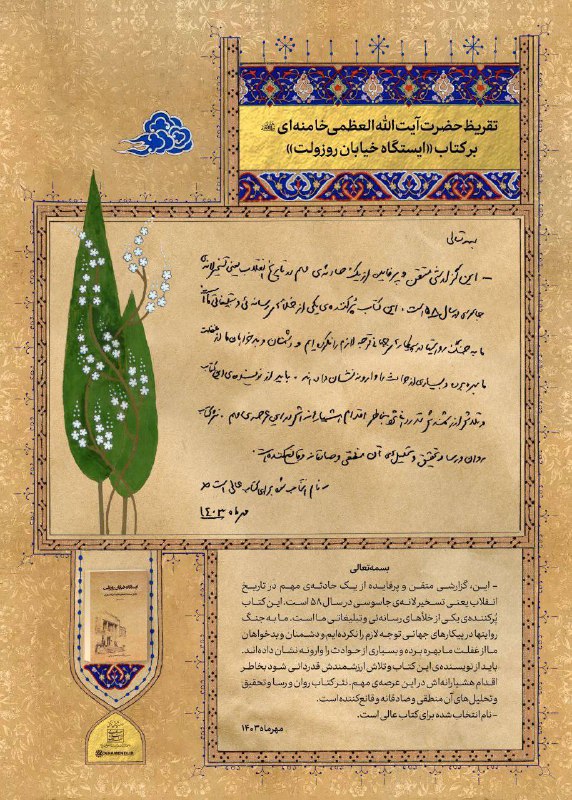 تقریظ حضرت آیت‌الله العظمی خامنه‌ای
بر کتاب «ایستگاه خیابان روزولت»
بسمه تعالی
– این گزارشی متقن و پرفایده از یک حادثه‌ی مهم در تاریخ انقلاب یعنی تسخیر لانه‌ی
جاسوسی در سال ۵۸ است. این کتاب پُرکننده‌ی یکی از خلأهای رسانه‌ئی و تبلیغاتی ما است.
ما به جنگ روایتها در پیکارهای جهانی توجه لازم را نکرده‌ایم و دشمنان و بدخواهان ما از غفلت
ما بهره برده و بسیاری از حوادث را وارونه نشان داده‌اند. باید از نویسنده‌ی این کتاب
و تلاش ارزشمندش قدردانی شود بخاطر اقدام هشیارانه‌اش در این عرصه‌ی مهم. نثر کتاب
روان و رسا و تحقیق و تحلیل‌های آن منطقی و صادقانه و قانع‌کننده است.
– نام انتخاب شده برای کتاب عالی است
مهر ماه ۱۴۰۳
بسمه‌تعالی
– این، گزارشی متقن و پرفایده از یک حادثه‌ی مهم در تاریخ
انقلاب یعنی تسخیر لانه‌ی جاسوسی در سال ۵۸ است. این کتاب
پُرکننده‌ی یکی از خلأهای رسانه‌ئی و تبلیغاتی ما است. ما به جنگ
روایتها در پیکارهای جهانی توجه لازم را نکرده‌ایم و دشمنان و بدخواهان
ما از غفلت ما بهره برده و بسیاری از حوادث را وارونه نشان داده‌اند.
باید از نویسنده‌ی این کتاب و تلاش ارزشمندش قدردانی شود بخاطر
اقدام هشیارانه‌اش در این عرصه‌ی مهم. نثر کتاب روان و رسا و تحقیق و
تحلیل‌های آن منطقی و صادقانه و قانع‌کننده است.
– نام انتخاب شده برای کتاب عالی است.
مهرماه ۱۴۰۳
ایستگاه خیابان روزولت